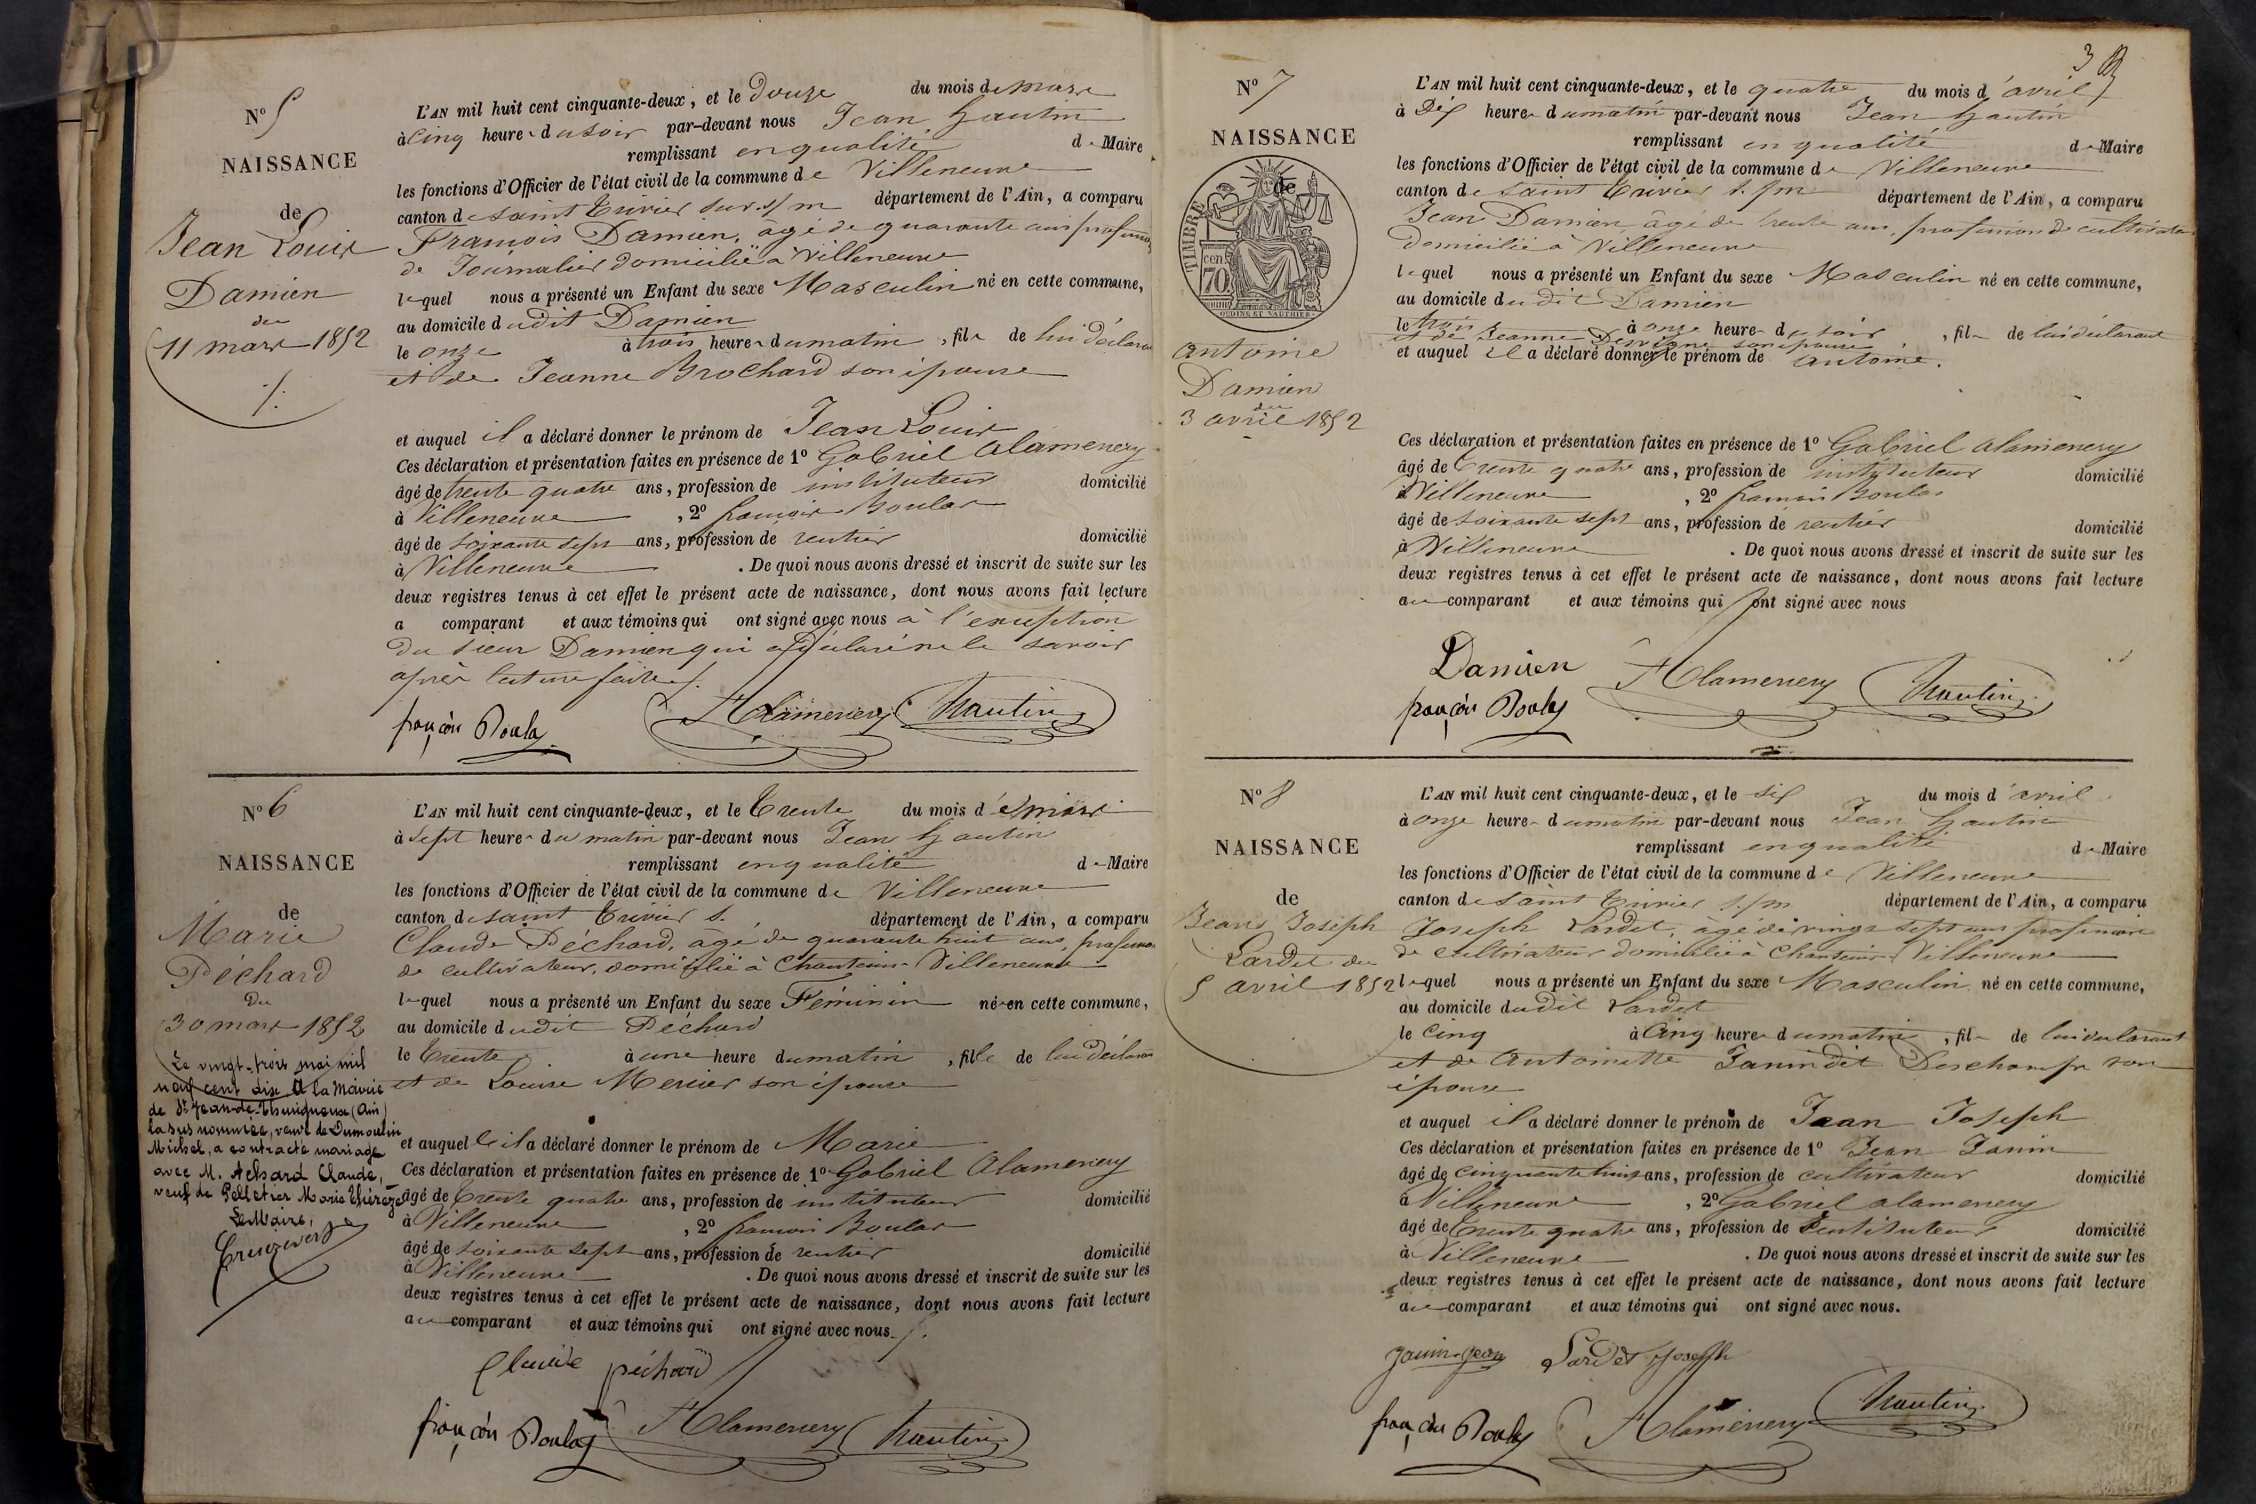 N° 5
NAISSANCE
de
Jean Louis
Damien
du
11 mars 1852
L'AN mil huit cent cinquante-deux, et le douze du mois de mars
à cinq heures du soir par-devant nous Jean Gautin
remplissant en qualité de Maire
les fonctions d'Officier de l'état civil de la commune de Villeneuve
canton de saint Trivier sur s/m département de l'Ain, a comparu
François Damien, âgé de quarante ans profession
de Journalier domicilié à Villeneuve
lequel nous a présenté un Enfant du sexe Masculin né en cette commune,
au domicile dudit Damien
le onze à trois heures du matin, fils de lui déclarant
et de Jeanne Brochard son épouse
et auquel il a déclaré donner le prénom de Jean Louis
Ces déclaration et présentation faites en présence de 1° Gabriel Alamenery
âgé de trente quatre ans, profession de instituteur domicilié
à Villeneuve, 2° françois Boulas
âgé de soixante sept ans, profession de rentier domicilié
à Villeneuve. De quoi nous avons dressé et inscrit de suite sur les
deux registres tenus à cet effet le présent acte de naissance, dont nous avons fait lecture
a comparant et aux témoins qui ont signé avec nous à l'exception
du sieur Damien qui a déclaré ne le savoir
après lecture faite
françois Boulas Alamenery Gautin
N° 6
NAISSANCE
de
Marie
Péchard
du
30 mars 1852
Le vingt-trois mai mil
neuf cent dix à la Mairie
de St Jean-de-Thurigneux (Ain)
la sus nommée, veuve de Dumoulin
Michel, a contracté mariage
avec M. Achard Claude,
veuf de Pelletier Marie Thérèze
Le Maire,
L'AN mil huit cent cinquante-deux, et le Trente du mois de mars
à sept heures du matin par-devant nous Jean Gautin
remplissant en qualité de Maire
les fonctions d'Officier de l'état civil de la commune de Villeneuve
canton de saint Trivier s. département de l'Ain, a comparu
Claude Péchard, âgé de quarante huit ans, profession
de cultivateur, domicilié à Chanteins Villeneuve
lequel nous a présenté un Enfant du sexe Féminin né en cette commune,
au domicile dudit Péchard
le Trente à une heure du matin, fille de lui déclarant
et de Louise Mercier son épouse
et auquel il a déclaré donner le prénom de Marie
Ces déclaration et présentation faites en présence de 1° Gabriel Alamenery
âgé de Trente quatre ans, profession de instituteur domicilié
à Villeneuve, 2° françois Boulas
âgé de soixante sept ans, profession de rentier domicilié
à Villeneuve. De quoi nous avons dressé et inscrit de suite sur les
deux registres tenus à cet effet le présent acte de naissance, dont nous avons fait lecture
au comparant et aux témoins qui ont signé avec nous
Claude péchard
françois Boulas Alamenery Gautin
3
N° 7
NAISSANCE
de
TIMBRE
70 cen
OUDINE ET VAUTHIER
Antoine
Damien
du
3 avril 1852
L'AN mil huit cent cinquante-deux, et le quatre du mois d'avril
à Dix heures du matin par-devant nous Jean Gautin
remplissant en qualité de Maire
les fonctions d'Officier de l'état civil de la commune de Villeneuve
canton de saint Trivier s./m département de l'Ain, a comparu
Jean Damien âgé de trente ans, profession de cultivateur
domicilié à Villeneuve
lequel nous a présenté un Enfant du sexe Masculin né en cette commune,
au domicile dudit Damien
le trois à onze heures du soir, fils de lui déclarant
et de Jeanne son épouse
et auquel il a déclaré donner le prénom de Antoine.
Ces déclaration et présentation faites en présence de 1° Gabriel Alamenery
âgé de Trente quatre ans, profession de instituteur domicilié
à Villeneuve, 2° françois Boulas
âgé de soixante sept ans, profession de rentier domicilié
à Villeneuve. De quoi nous avons dressé et inscrit de suite sur les
deux registres tenus à cet effet le présent acte de naissance, dont nous avons fait lecture
au comparant et aux témoins qui ont signé avec nous
Damien Alamenery Gautin
françois Boulas
N° 8
NAISSANCE
de
Jean Joseph
Lardet du
5 avril 1852
L'AN mil huit cent cinquante-deux, et le six du mois d'avril
à onze heures du matin par-devant nous Jean Gautin
remplissant en qualité de Maire
les fonctions d'Officier de l'état civil de la commune de Villeneuve
canton de saint Trivier s/m département de l'Ain, a comparu
Joseph Lardet, âgé de vingt sept ans profession
de cultivateur domicilié à Chanteins Villeneuve
lequel nous a présenté un Enfant du sexe Masculin né en cette commune,
au domicile dudit Lardet
le Cinq à Cinq heures du matin, fils de lui déclarant
et de Antoinette Janin dit Deschamps son
épouse
et auquel il a déclaré donner le prénom de Jean Joseph
Ces déclaration et présentation faites en présence de 1° Jean Janin
âgé de cinquante huit ans, profession de cultivateur domicilié
à Villeneuve, 2° Gabriel Alamenery
âgé de Trente quatre ans, profession de Instituteur domicilié
à Villeneuve. De quoi nous avons dressé et inscrit de suite sur les
deux registres tenus à cet effet le présent acte de naissance, dont nous avons fait lecture
au comparant et aux témoins qui ont signé avec nous.
Janin jean Lardet Joseph
françois Boulas Alamenery Gautin